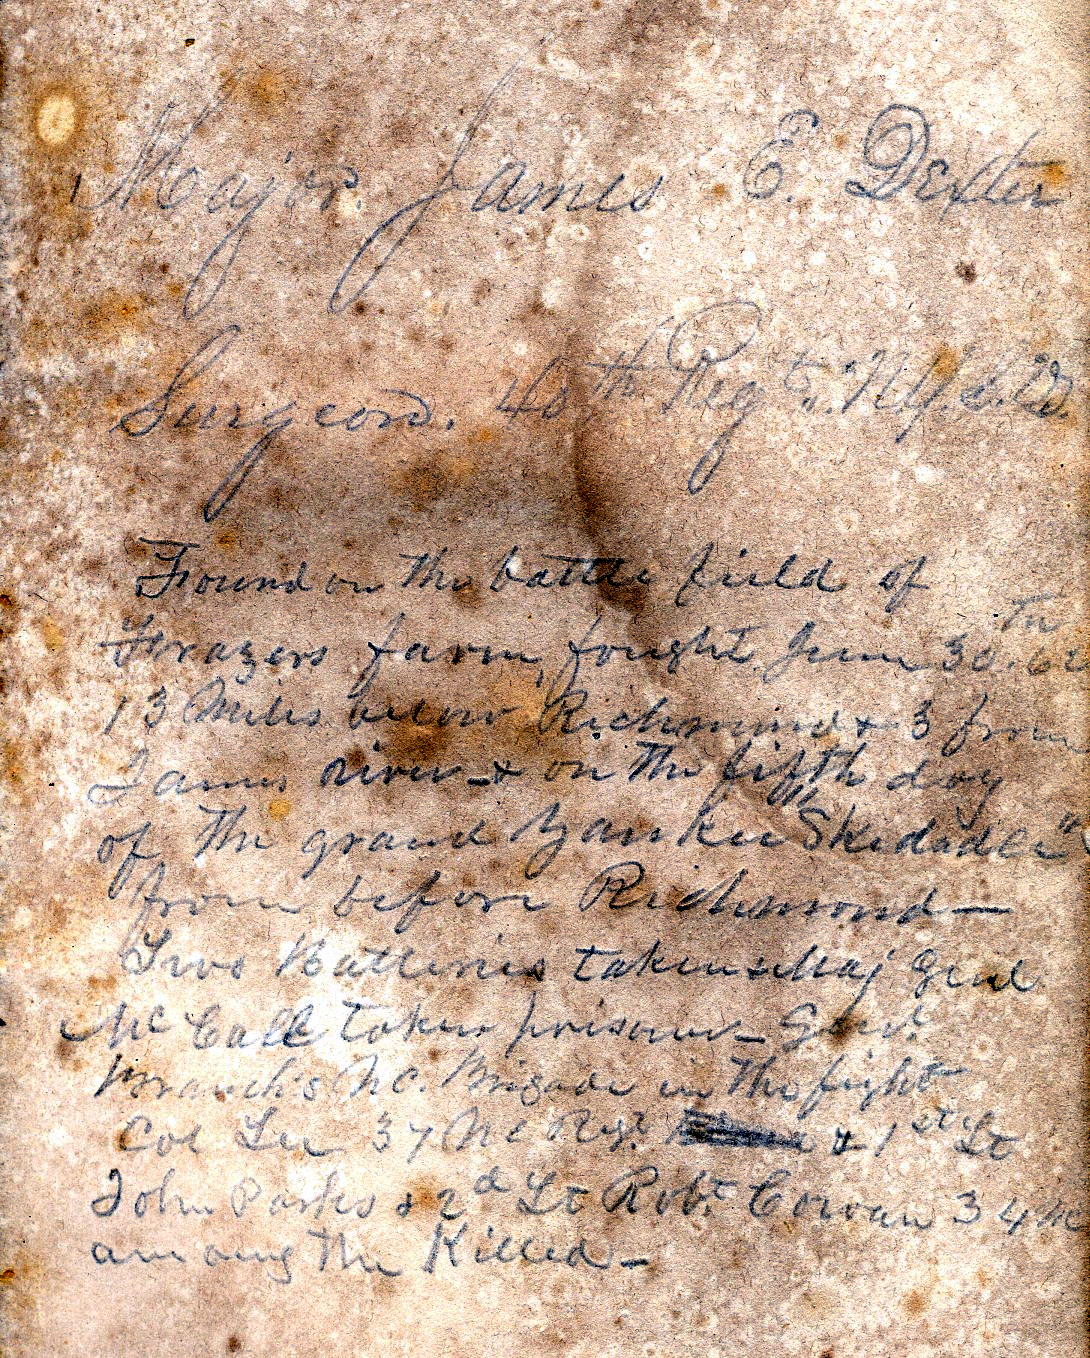 Major. James E. Dexter
Surgeon. 40th Regt. N.Y.S.V.
Found on the battle field of
Frazers farm, fought June 30th 62
13 Miles below Richmond & 3 from
James river & on the fifth day
of the grand Yankee "Skedadle"
from before Richmond —
Two Batteries taken & Maj Genl
McCall taken prisoner — Genl.
Branch's N.C. Brigade in the fight
Col Lee 37 N C Regt & 1st Lt
John Parks & 2d Lt Robt Cowan 34 NC
among the Killed —